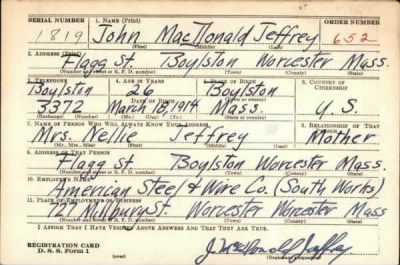 SERIAL NUMBER 1. NAME (Print) ORDER NUMBER
1819 John MacDonald Jeffrey 652
(First) (Middle) (Last)
2. ADDRESS (Print)
Flagg St. Boylston Worcester Mass.
(Town) (County) (State)
3. TELEPHONE 4. AGE IN YEARS 5. PLACE OF BIRTH 6. COUNTRY OF CITIZENSHIP
Boylston 26 Boylston
DATE OF BIRTH
3372 March 18, 1914 Mass. U.S.
(Exchange) (Number) (Mo.) (Day) (Yr.)
7. NAME OF PERSON WHO WILL ALWAYS KNOW YOUR ADDRESS 8. RELATIONSHIP OF THAT PERSON
Mrs. Nellie Jeffrey Mother
(Mr., Mrs., Miss) (First) (Middle) (Last)
9. ADDRESS OF THAT PERSON
Flagg St Boylston Worcester Mass.
(Town) (County) (State)
10. EMPLOYER'S NAME
American Steel & Wire Co. (South Works)
11. PLACE OF EMPLOYMENT OR BUSINESS
777 Millbury St. Worcester Worcester Mass
(Town) (County) (State)
I AFFIRM THAT I HAVE VERIFIED ABOVE ANSWERS AND THAT THEY ARE TRUE.
REGISTRATION CARD
D. S. S. Form 1 J. MacDonald Jeffrey